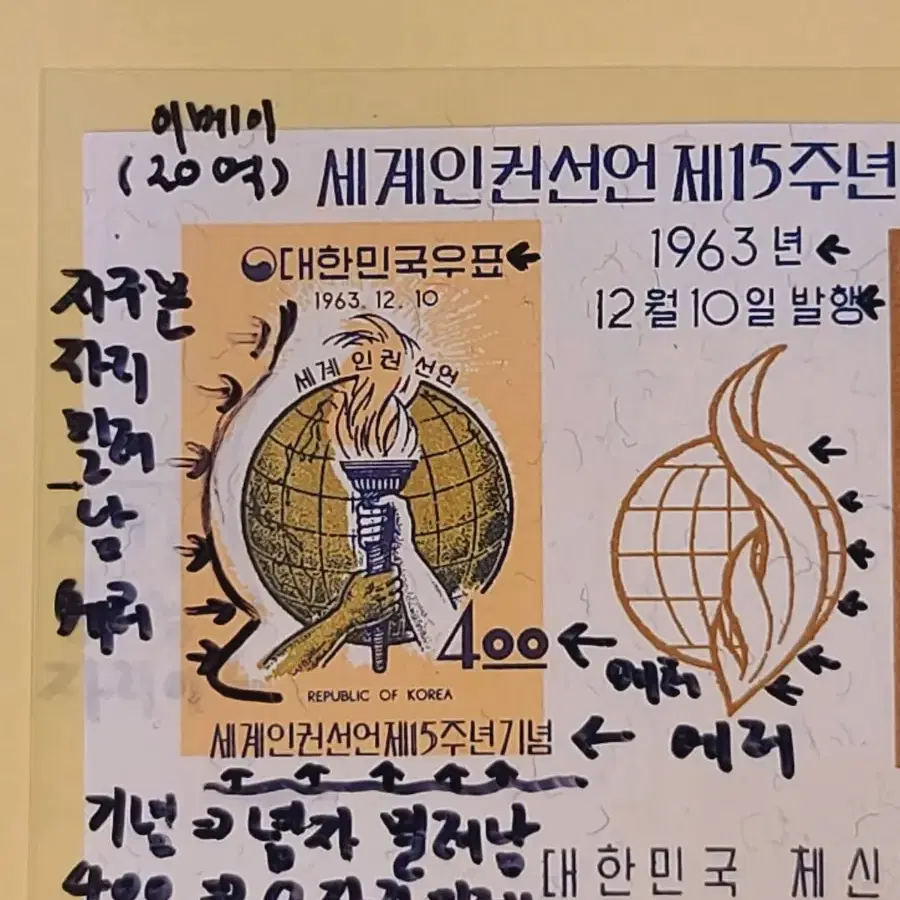 이베이
(20억)
세계인권선언 제15주년
대한민국우표
1963. 12. 10
세계 인권 선언
4.00
REPUBLIC OF KOREA
세계인권선언제15주년기념
1963 년
12월 10일 발행
지구본
자리
밀려
남
에러
에러
에러
기념 념자 밀려남
400
대한민국 체신